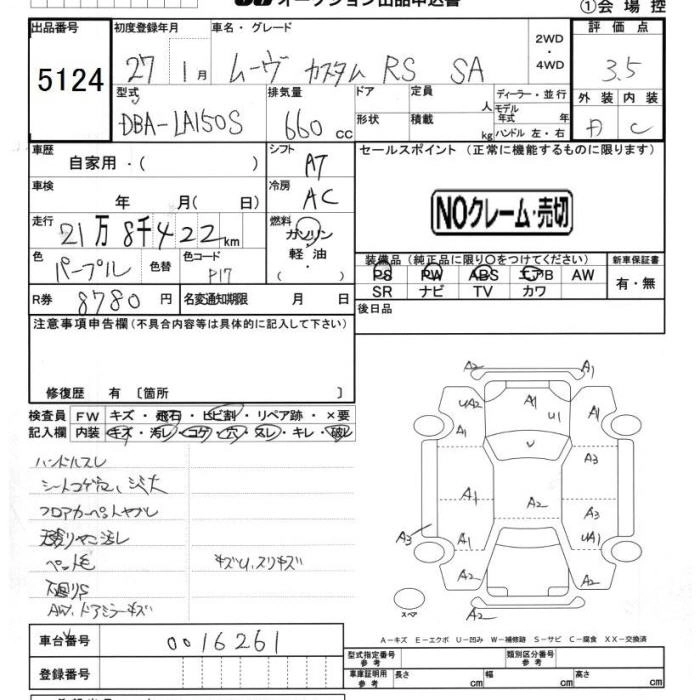 オークション出品申込書 ①会場控
出品番号 初度登録年月 車名・グレード 評価点
5124 27 1月 ムーヴ カスタム RS SA 2WD・4WD 3.5
型式 排気量 ドア 定員 人 ディーラー・並行 外装 内装
DBA-LA150S 660cc 形状 積載 kg モデル年式 年 ハンドル 左・右 C
車歴 シフト セールスポイント (正常に機能するものに限ります)
自家用・( ) AT
車検 冷房
年 月( 日) AC
NOクレーム・売切
走行 燃料
21万8千422km ガソリン
軽油
( )
色 色替 色コード 装備品 (純正品に限り○をつけてください) 新車保証書
パープル P17 PS PW ABS エアB AW 有・無
SR ナビ TV カワ
R券 8780円 名変通知期限 月 日 後日品
注意事項申告欄(不具合内容等は具体的に記入して下さい)
修復歴 有 〔箇所 〕
検査員 FW キズ・飛石・ヒビ割・リペア跡・×要
記入欄 内装 キズ・汚レ・コゲ・穴・スレ・キレ・破レ
ハンドルスレ
シートコゲ穴、シミ大
フロアカーペットヤブレ
天張りヤニ汚レ
ペット毛 キズU、スリキズ
下廻りS
AW、ドアミラーキズ
A2 A1
UA2 A1 U1 A1
A1 U A3
A1 A2 UA1
A3 A1 A1
A2 A2
スペア A2
A-キズ E-エクボ U-凹み W-補修跡 S-サビ C-腐食 XX-交換済
車台番号 0016261
型式指定番号 参考 類別区分番号 参考
登録番号 車庫証明用 参考 長さ cm 幅 cm 高さ cm